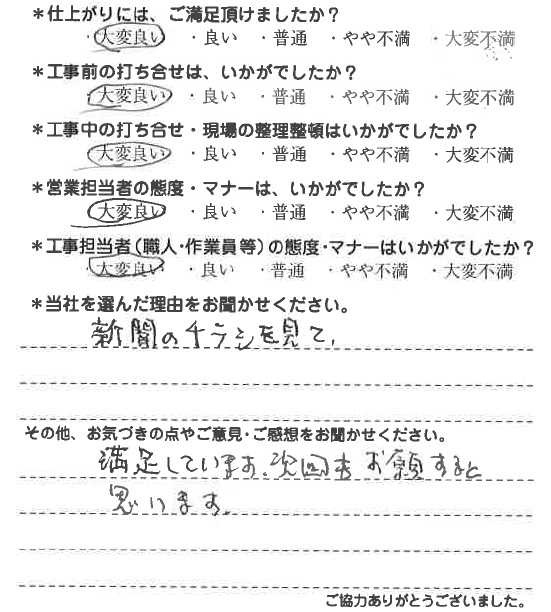 ＊仕上がりには、ご満足頂けましたか？
・大変良い ・良い ・普通 ・やや不満 ・大変不満
＊工事前の打ち合せは、いかがでしたか？
・大変良い ・良い ・普通 ・やや不満 ・大変不満
＊工事中の打ち合せ・現場の整理整頓はいかがでしたか？
・大変良い ・良い ・普通 ・やや不満 ・大変不満
＊営業担当者の態度・マナーは、いかがでしたか？
・大変良い ・良い ・普通 ・やや不満 ・大変不満
＊工事担当者（職人・作業員等）の態度・マナーはいかがでしたか？
・大変良い ・良い ・普通 ・やや不満 ・大変不満
＊当社を選んだ理由をお聞かせください。
新聞のチラシを見て、
その他、お気づきの点やご意見・ご感想をお聞かせください。
満足しています。次回もお願すると
思います。
ご協力ありがとうございました。